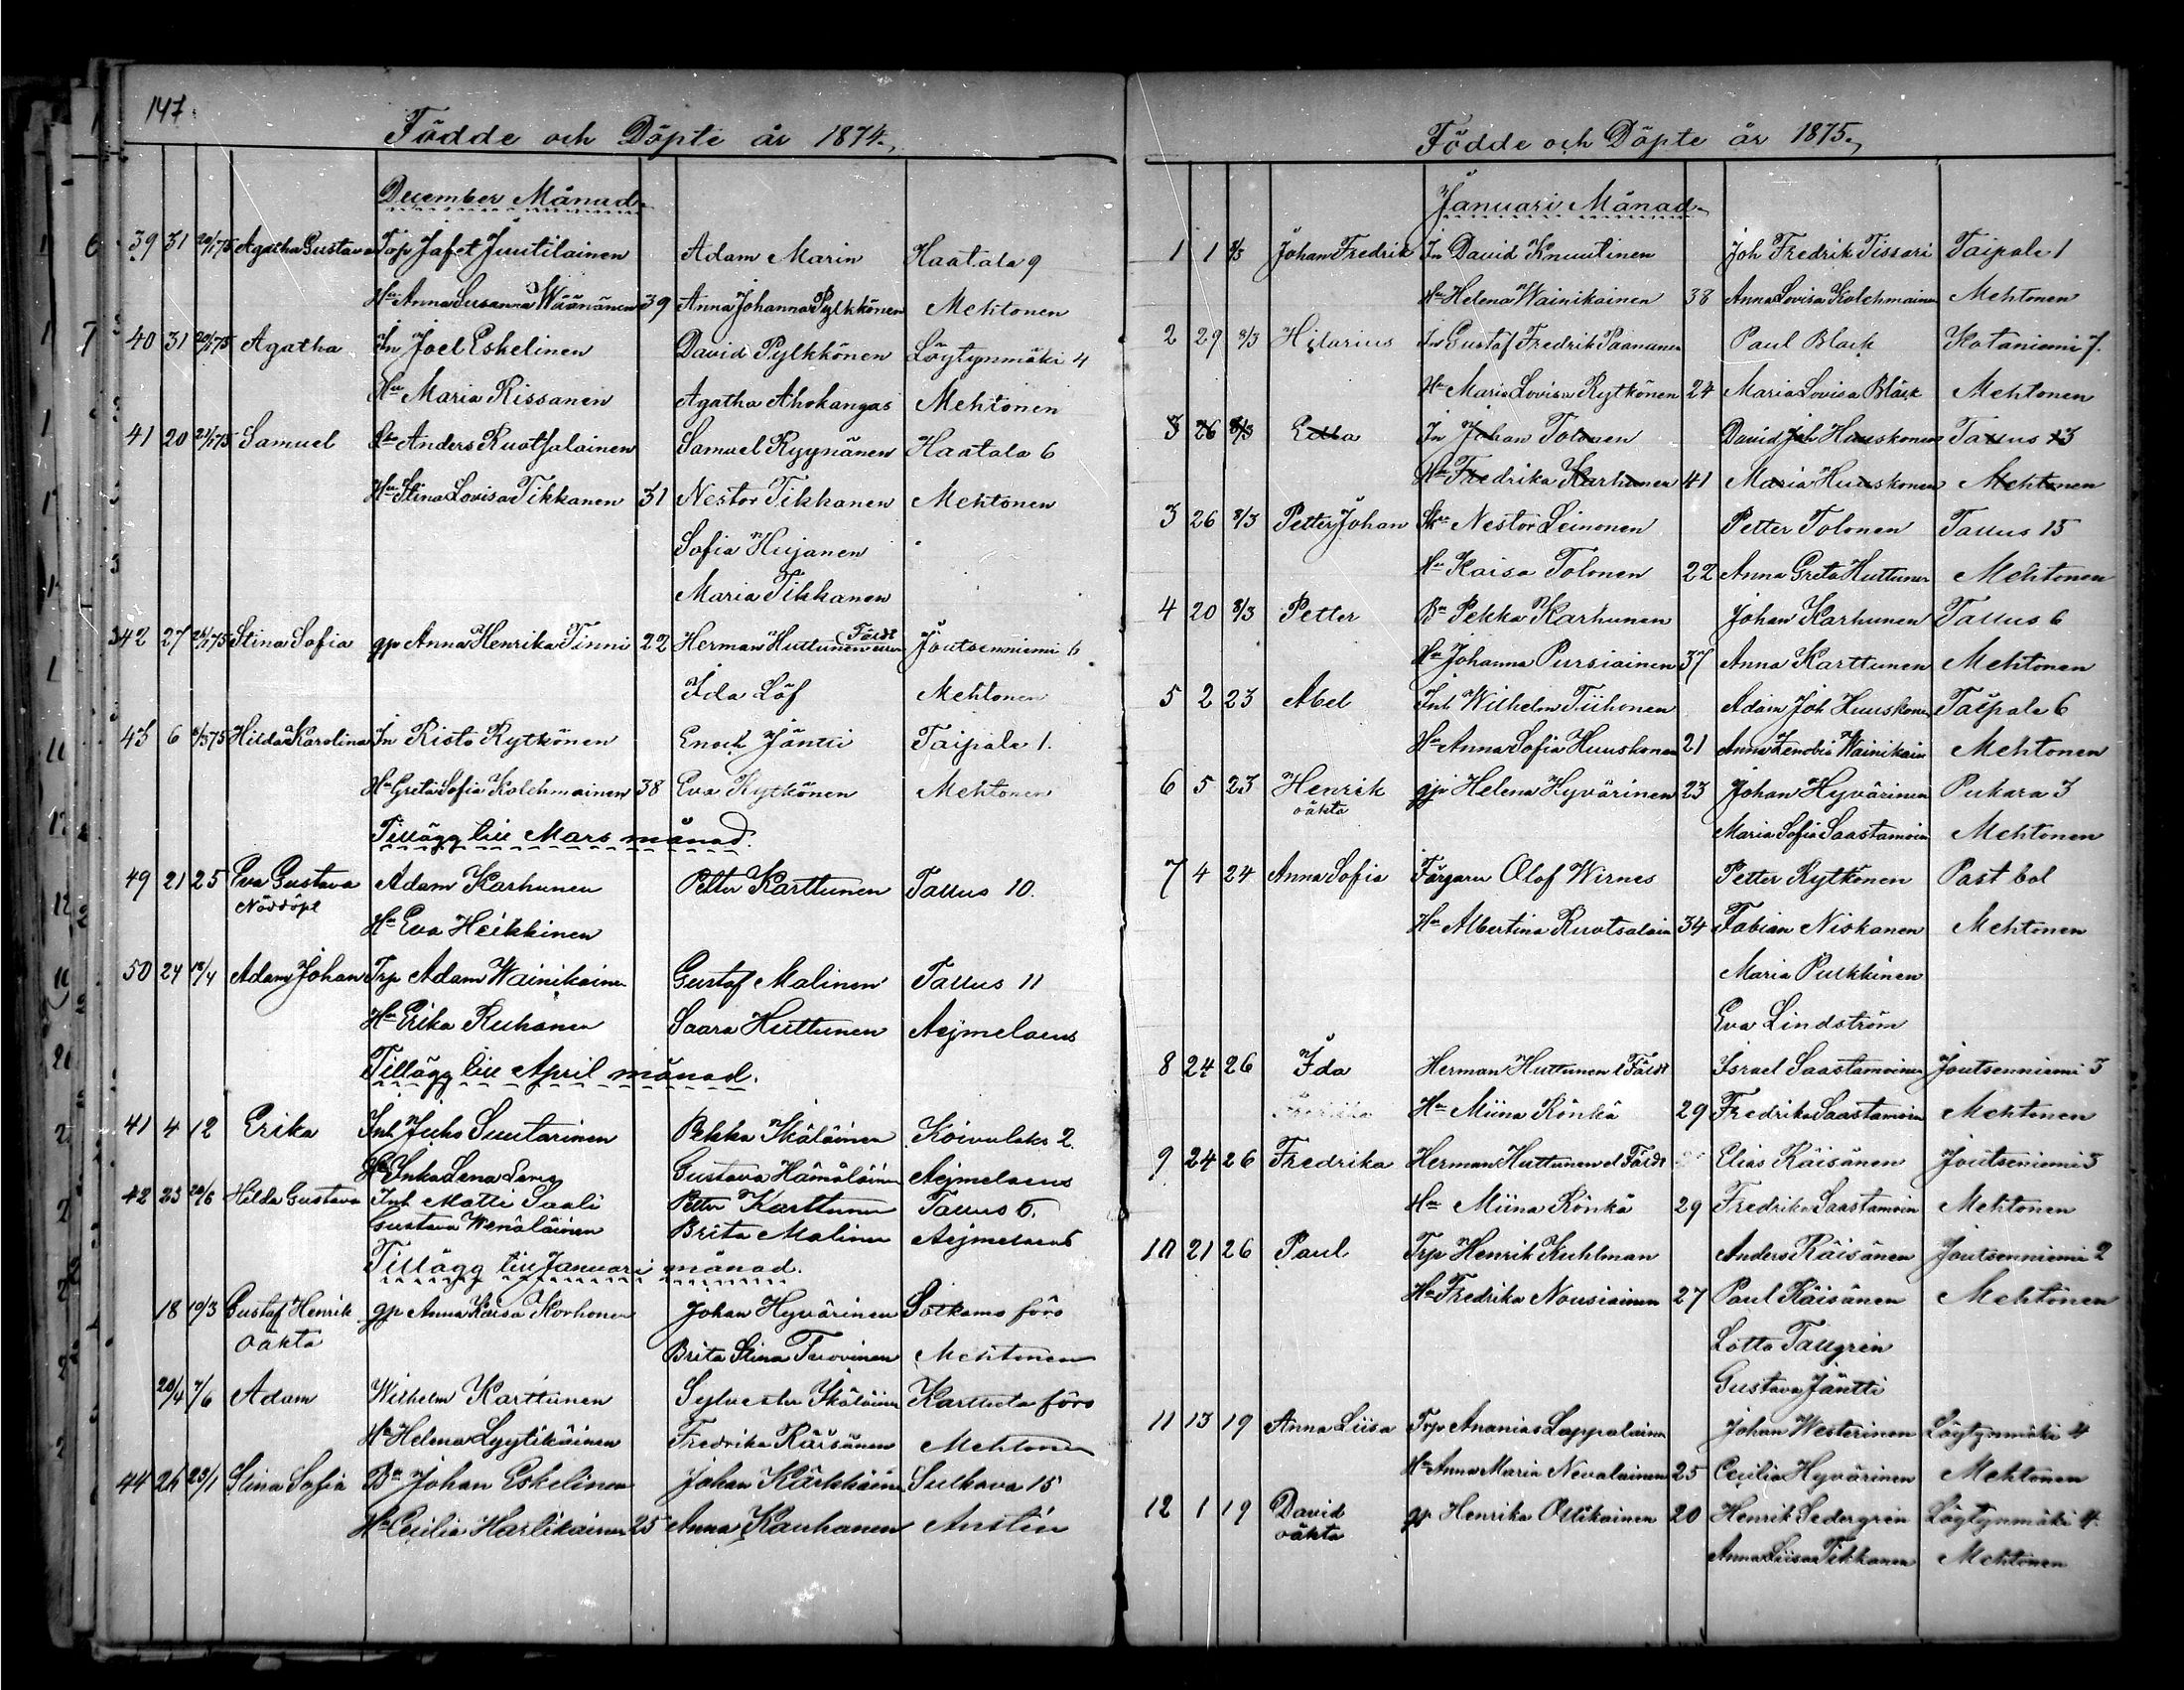 147.
Födde och Döpte år 1874.
December Månad.
39 31 20/1 75 Agatha Gustava Torp Jafet Juutilainen Adam Marin Haatala 9
Hu Anna Susanna Wäänänen 39 Anna Johanna Pylkkönen Mehtonen
40 31 20/1 75 Agatha In Joel Eskelinen David Pylkkönen Löytynmäki 4
Hu Maria Rissanen Agatha Ahokangas Mehtonen
41 20 21/1 75 Samuel Anders Ruotsalainen Samuel Ryynänen Haatala 6
Hu Stina Lovisa Tikkanen 31 Nestor Tikkanen Mehtonen
Sofia Hujanen
Maria Tikkanen
42 27 75 Stina Sofia gp Anna Henrika Tinni 22 Herman Huttunen Fäldt Joutsenniemi 6
Ida Löf Mehtonen
43 6 75 Hilda Karolina In Risto Rytkönen Enoch Jäntti Taipale 1.
Hu Greta Sofia Kolehmainen 38 Eva Rytkönen Mehtonen
Tillägg till Mars månad.
49 21 25 Eva Gustava Adam Karhunen Petter Karttunen Tallus 10.
Nöddöpt
Hu Eva Heikkinen
50 24 18/4 Adam Johan Trp Adam Wainikainen Gustaf Malinen Tallus 11
Hu Erika Ruhanen Saara Huttunen Aejmelaeus
Tillägg till April månad.
41 4 12 Erika Inh Juho Suutarinen Pekka Ikäläinen Koivulaks 2.
Hu Inka Lena Gustava Hämäläinen Aejmelaeus
42 23 20/6 Hilda Gustava Inh Matti Saali Petter Karttunen Tallus 6.
Gustava Wenäläinen Brita Malinen Aejmelaeus
Tillägg till Januari månad.
18 19/3 Gustaf Henrik gp Anna Kaisa Korhonen Johan Hyvärinen Sotkamo förs
oäkta
Brita Stina Tuovinen Mehtonen
20/4 7/6 Adam Wilhelm Karttunen Sylvester Ikäläinen Karttula förs
Hu Helena Lyytikäinen Fredrika Räisänen Mehtonen
44 26 23/1 Stina Sofia Bn Johan Eskelinen Johan Kärkkäinen Sulkava 15
Hu Cecilia Hartikainen 25 Anna Kauhanen Austin
Födde och Döpte år 1875.
Januari Månad.
1 1 8/3 Johan Fredrik In David Knuutinen Joh Fredrik Tissari Taipale 1
Hu Helena Wainikainen 38 Anna Lovisa Kolehmainen Mehtonen
2 29 8/3 Hilarius In Gustaf Fredrik Paananen Paul Black Kataniemi 7.
Hu Maria Lovisa Rytkönen 24 Maria Lovisa Bläck Mehtonen
3 26 8/3 Edla In Johan Tolonen David Joh Huuskonen Tallus 13
Hu Fredrika Karhunen 41 Maria Huuskonen Mehtonen
3 26 8/3 Petter Johan Nestor Leinonen Petter Tolonen Tallus 15
Hu Kaisa Tolonen 22 Anna Greta Huttunen Mehtonen
4 20 8/3 Petter Bn Pekka Karhunen Johan Karhunen Tallus 6
Hu Johanna Pursiainen 37 Anna Karttunen Mehtonen
5 2 23 Abel Inh Wilhelm Tiihonen Adam Joh Huuskonen Taipale 6
Hu Anna Sofia Huuskonen 21 Anna Zenobia Wainikain Mehtonen
6 5 23 Henrik gp Helena Hyvärinen 23 Johan Hyvärinen Pukara 3
oäkta
Maria Sofia Saastamoin Mehtonen
7 4 24 Anna Sofia Färgaren Olof Wirnes Petter Rytkönen Past bol
Hu Albertina Ruotsalain 34 Fabian Niskanen Mehtonen
Maria Pulkkinen
Eva Lindström
8 24 26 Ida Herman Huttunen l Fäldt Israel Saastamoinen Joutsenniemi 3
Hu Miina Könkä 29 Fredrika Saastamoin Mehtonen
9 24 26 Fredrika Herman Huttunen el Fäldt Elias Räisänen Joutseniemi 3
Hu Miina Könkä 29 Fredrika Saastamoin Mehtonen
10 21 26 Paul Trp Henrik Kuhlman Anders Räisänen Joutsenniemi 2
Hu Fredrika Nousiainen 27 Paul Räisänen Mehtonen
Lotta Tallgrén
Gustava Jäntti
11 13 19 Anna Liisa Trp Ananias Lappalainen Johan Westerinen Löytynmäki 4
Hu Anna Maria Nevalainen 25 Cecilia Hyvärinen Mehtonen
12 1 19 David gp Henrika Ollikainen 20 Henrik Sedergren Löytynmäki 4.
oäkta
Anna Liisa Tikkanen Mehtonen